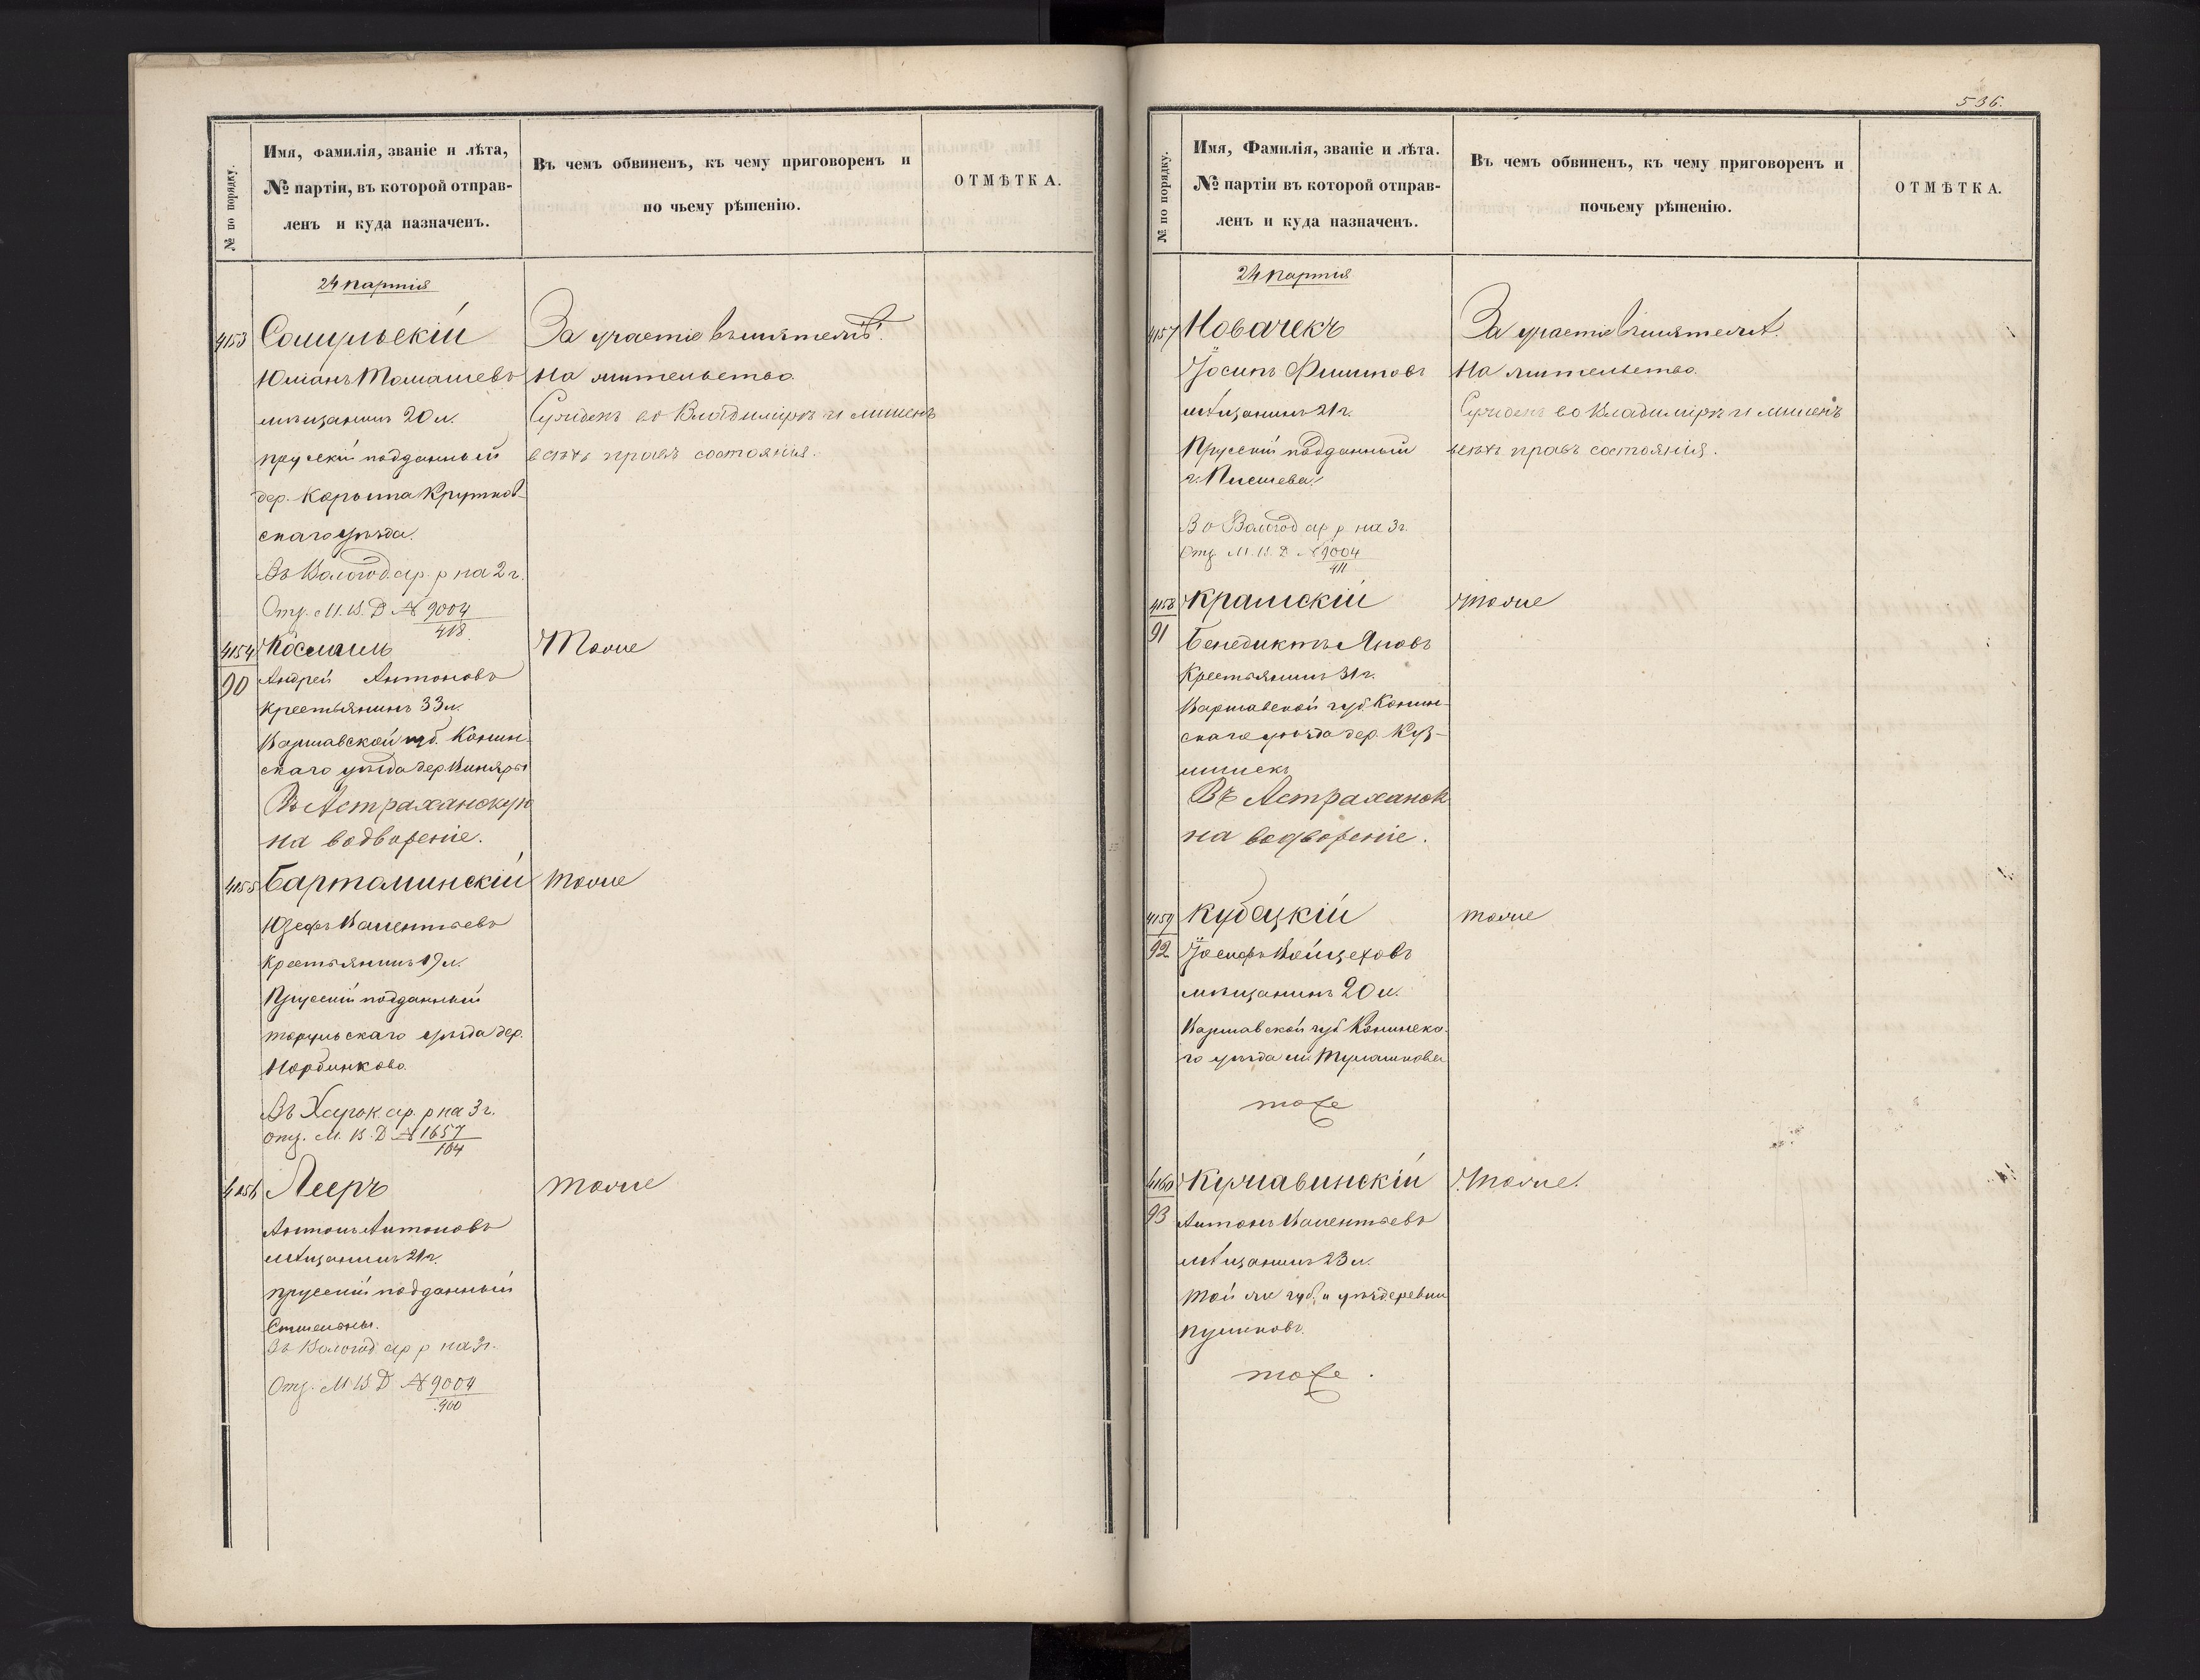 № по порядку.
Имя, Фамилія, званіе и лѣта,
№ партіи, въ которой отправ-
ленъ и куда назначенъ.
Въ чемъ обвиненъ, къ чему приговоренъ и
по чьему рѣшенію.
ОТМѢТКА.
24 партія
4153
За участіе въ мятежѣ.
Юліанъ Томашевъ
На жительство.
мѣщанинъ 20 л.
Сужденъ во Владимірѣ и лишенъ
прусскій подданный
всѣхъ правъ состоянія.
дер.
скаго уѣзда.
Въ Вологод. ар. р на 2 г.
Отз. М. В. Д № 9004
418.
4154
Тоже
90
Андрей Антоновъ
крестьянинъ 33 л.
Варшавской губ. Конин-
скаго уѣзда дер.
Въ Астраханскую
на водвореніе.
4155 Бартоминскій
тоже
Юзефъ Валентьевъ
Крестьянинъ 19 л.
Прусскій подданный
уѣзда дер.
Въ Харьк. ар. р на 3 г.
Отз. М. В. Д № 1657
104
4156 Лееръ
тоже
Антонъ Антоновъ
мѣщанинъ 21 г.
прусскій подданный
Въ Вологод ар р на 3 г.
Отз. М В Д № 9004
400
536.
№ по порядку.
Имя, Фамилія, званіе и лѣта.
№ партіи въ которой отправ-
ленъ и куда назначенъ.
Въ чемъ обвиненъ, къ чему приговоренъ и
почьему рѣшенію.
ОТМѢТКА.
24 партія
4157 Новачекъ
За участіе въ мятежѣ.
Іосипъ Филиповъ
На жительство.
мѣщанинъ 21 г.
Сужденъ во Владимірѣ и лишенъ
Прусскій подданный
всѣхъ правъ состоянія.
г.
Въ Вологод ар р на 3 г.
Отз М. В. Д № 9004
411
4158 Крамскій
тоже
91
Бенедиктъ Яновъ
Крестьянинъ 31 г.
Варшавской губ. Конин-
скаго уѣзда дер.
Въ Астраханск
на водвореніе.
4159 Кубацкій
тоже
92
Іосифъ Войцеховъ
мѣщанинъ 20 л.
Варшавской губ Конинска-
го уѣзда м.
тоже
4160 Куявинскій
тоже.
93
Антонъ Валентьевъ
мѣщанинъ 23 л.
той же губ. и уѣз деревни
тоже.